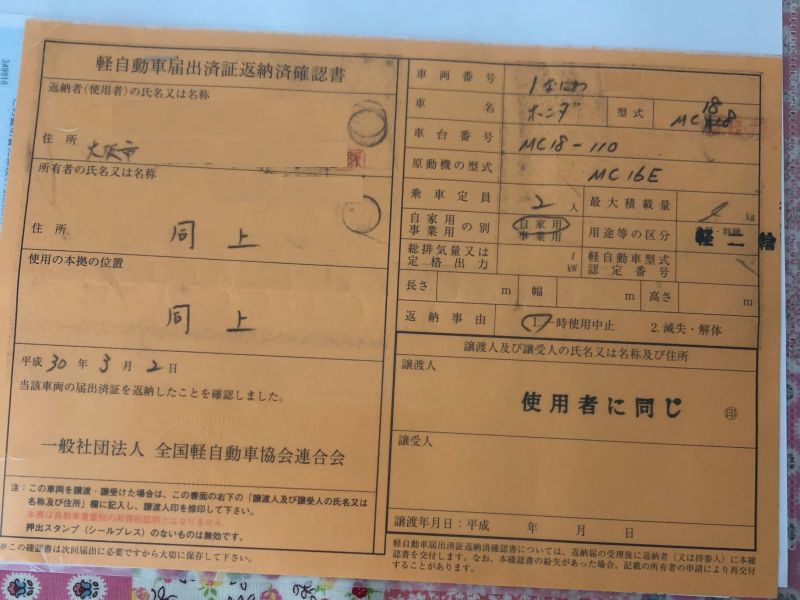 軽自動車届出済証返納済確認書
返納者(使用者)の氏名又は名称
住所 大阪市
所有者の氏名又は名称
住所 同上
使用の本拠の位置
同上
平成 30 年 3 月 2 日
当該車両の届出済証を返納したことを確認しました。
一般社団法人 全国軽自動車協会連合会
注：この車両を譲渡・譲受けた場合は、この書面の右下の「譲渡人及び譲受人の氏名又は
名称及び住所」欄に記入し、譲渡人印を捺印して下さい。
本書は自動車重量税の非課税証明とはなりません。
押出スタンプ（シールプレス）のないものは無効です。
※この確認書は次回届出に必要ですから大切に保存して下さい。
車両番号 1なにわ
車名 ホンダ 型式 MC18
車台番号 MC18-110
原動機の型式 MC16E
乗車定員 2人 最大積載量 kg
自家用
事業用の別 自家用
事業用 用途等の区分 軽二輪
総排気量又は
定格出力 l
kW 軽自動車型式
認定番号
長さ m 幅 m 高さ m
返納事由 1.一時使用中止 2.滅失・解体
譲渡人及び譲受人の氏名又は名称及び住所
譲渡人
使用者に同じ 印
譲受人
譲渡年月日：平成 年 月 日
軽自動車届出済証返納済確認書については、返納届の受理後に返納者（又は持参人）に本確
認書を交付します。なお、本確認書の紛失があった場合、記載の所有者の申請により再交付
することがあります。
349910